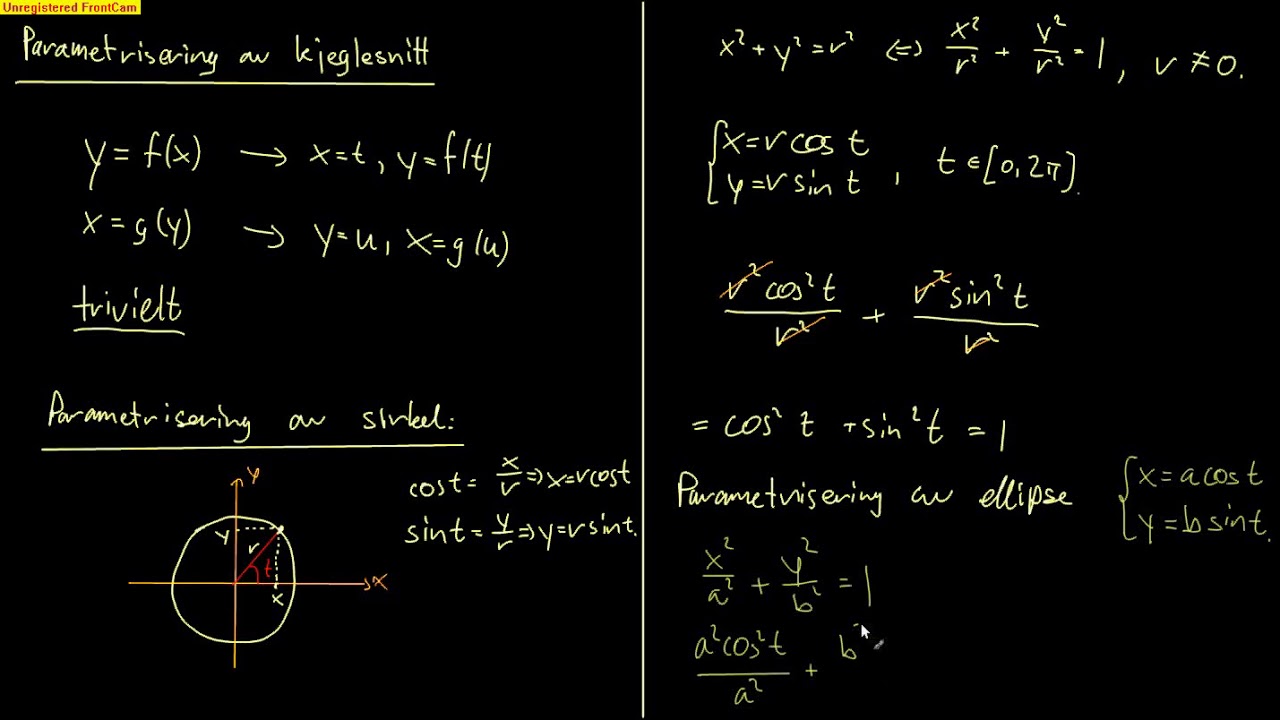 Unregistered FrontCam
Parametrisering av kjeglesnitt
y = f(x) → x=t, y=f(t)
x = g(y) → y=u, x=g(u)
trivielt
Parametrisering av sirkel:
y
y
r
t
x
x
cos t = x/r ⇒ x=r cos t
sin t = y/r ⇒ y=r sin t.
x² + y² = r² ⇔ x²/r² + y²/r² = 1, r ≠ 0.
{x = r cos t
y = r sin t, t ∈ [0, 2π].
r² cos² t / r² + r² sin² t / r²
= cos² t + sin² t = 1
Parametrisering av ellipse
{x = a cos t
y = b sin t.
x²/a² + y²/b² = 1
a² cos² t / a² + b